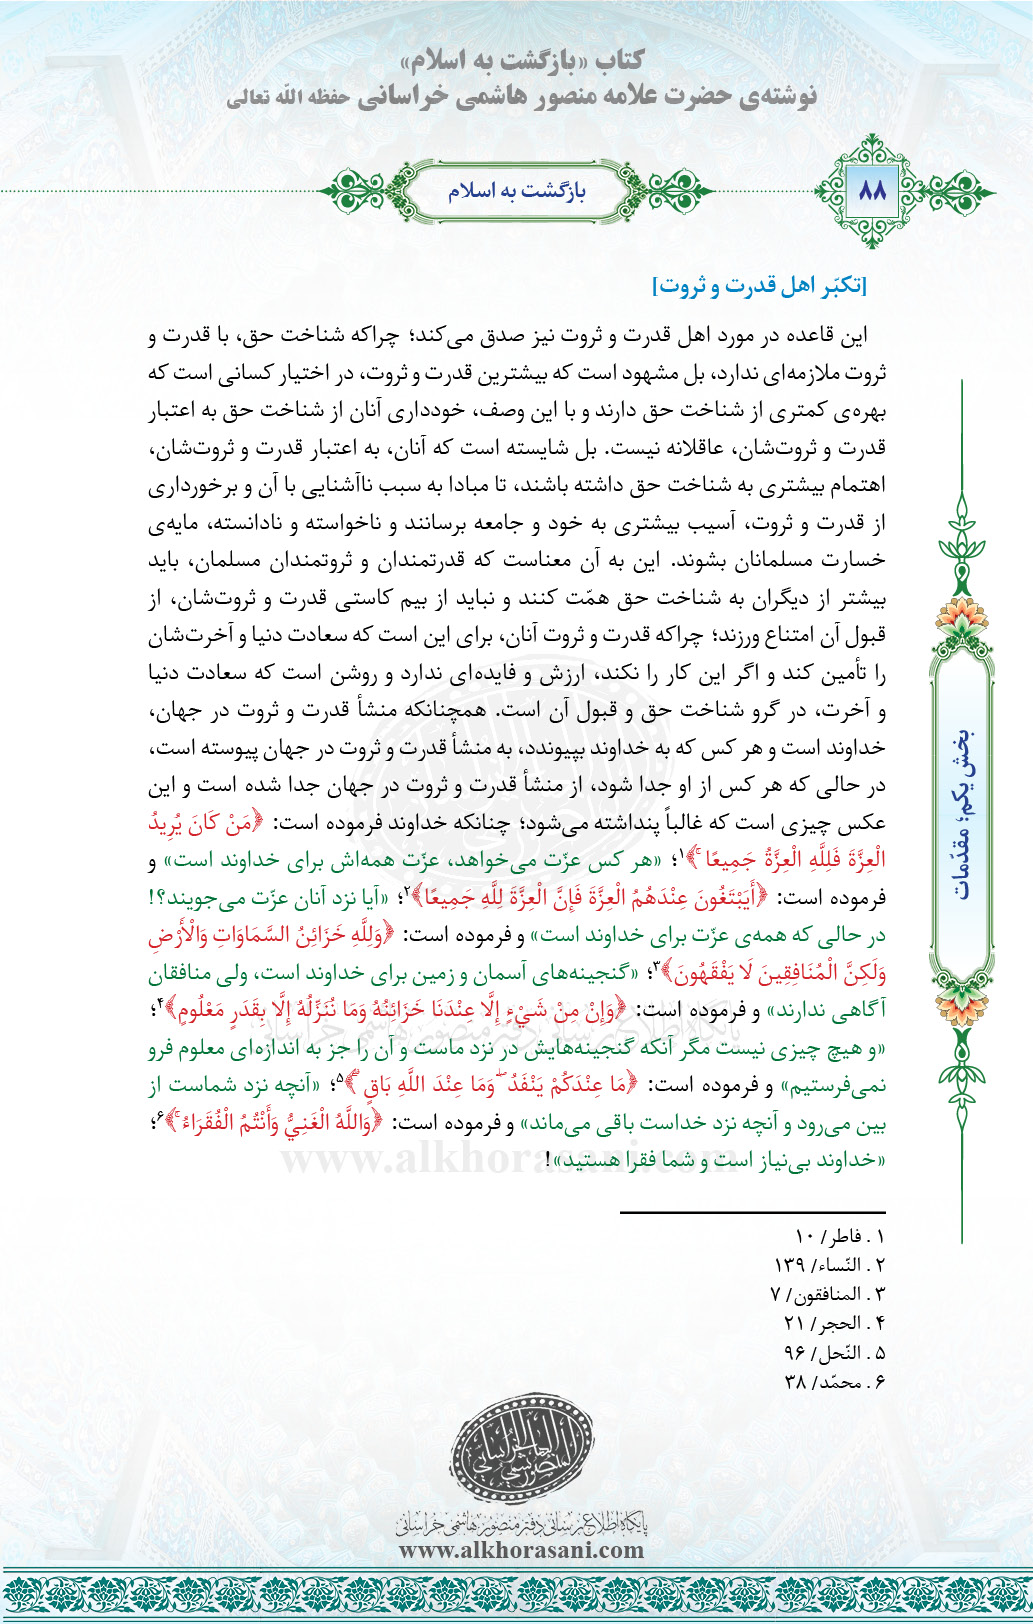 کتاب «بازگشت به اسلام»
نوشته‌ی حضرت علامه منصور هاشمی خراسانی حفظه الله تعالی
۸۸
بازگشت به اسلام
[تکبّر اهل قدرت و ثروت]
این قاعده در مورد اهل قدرت و ثروت نیز صدق می‌کند؛ چراکه شناخت حق، با قدرت و
ثروت ملازمه‌ای ندارد، بل مشهود است که بیشترین قدرت و ثروت، در اختیار کسانی است که
بهره‌ی کمتری از شناخت حق دارند و با این وصف، خودداری آنان از شناخت حق به اعتبار
قدرت و ثروت‌شان، عاقلانه نیست. بل شایسته است که آنان، به اعتبار قدرت و ثروت‌شان،
اهتمام بیشتری به شناخت حق داشته باشند، تا مبادا به سبب ناآشنایی با آن و برخورداری
از قدرت و ثروت، آسیب بیشتری به خود و جامعه برسانند و ناخواسته و نادانسته، مایه‌ی
خسارت مسلمانان بشوند. این به آن معناست که قدرتمندان و ثروتمندان مسلمان، باید
بیشتر از دیگران به شناخت حق همّت کنند و نباید از بیم کاستی قدرت و ثروت‌شان، از
قبول آن امتناع ورزند؛ چراکه قدرت و ثروت آنان، برای این است که سعادت دنیا و آخرت‌شان
را تأمین کند و اگر این کار را نکند، ارزش و فایده‌ای ندارد و روشن است که سعادت دنیا
و آخرت، در گرو شناخت حق و قبول آن است. همچنانکه منشأ قدرت و ثروت در جهان،
خداوند است و هر کس که به خداوند بپیوندد، به منشأ قدرت و ثروت در جهان پیوسته است،
در حالی که هر کس از او جدا شود، از منشأ قدرت و ثروت در جهان جدا شده است و این
عکس چیزی است که غالباً پنداشته می‌شود؛ چنانکه خداوند فرموده است: ﴿مَنْ كَانَ يُرِيدُ
الْعِزَّةَ فَلِلَّهِ الْعِزَّةُ جَمِيعًا ۚ﴾۱؛ «هر کس عزّت می‌خواهد، عزّت همه‌اش برای خداوند است» و
فرموده است: ﴿أَيَبْتَغُونَ عِنْدَهُمُ الْعِزَّةَ فَإِنَّ الْعِزَّةَ لِلَّهِ جَمِيعًا﴾۲؛ «آیا نزد آنان عزّت می‌جویند؟!
در حالی که همه‌ی عزّت برای خداوند است» و فرموده است: ﴿وَلِلَّهِ خَزَائِنُ السَّمَاوَاتِ وَالْأَرْضِ
وَلَكِنَّ الْمُنَافِقِينَ لَا يَفْقَهُونَ﴾۳؛ «گنجینه‌های آسمان و زمین برای خداوند است، ولی منافقان
آگاهی ندارند» و فرموده است: ﴿وَإِنْ مِنْ شَيْءٍ إِلَّا عِنْدَنَا خَزَائِنُهُ وَمَا نُنَزِّلُهُ إِلَّا بِقَدَرٍ مَعْلُومٍ﴾۴؛
«و هیچ چیزی نیست مگر آنکه گنجینه‌هایش در نزد ماست و آن را جز به اندازه‌ای معلوم فرو
نمی‌فرستیم» و فرموده است: ﴿مَا عِنْدَكُمْ يَنْفَدُ ۖ وَمَا عِنْدَ اللَّهِ بَاقٍ ۗ﴾۵؛ «آنچه نزد شماست از
بین می‌رود و آنچه نزد خداست باقی می‌ماند» و فرموده است: ﴿وَاللَّهُ الْغَنِيُّ وَأَنْتُمُ الْفُقَرَاءُ ۚ﴾۶؛
«خداوند بی‌نیاز است و شما فقرا هستید»!
بخش یکم؛ مقدّمات
۱ . فاطر/ ۱۰
۲ . النّساء/ ۱۳۹
۳ . المنافقون/ ۷
۴ . الحجر/ ۲۱
۵ . النّحل/ ۹۶
۶ . محمّد/ ۳۸
پایگاه اطلاع‌رسانی دفتر منصور هاشمی خراسانی
www.alkhorasani.com
پایگاه اطلاع‌رسانی دفتر منصور هاشمی خراسانی
www.alkhorasani.com